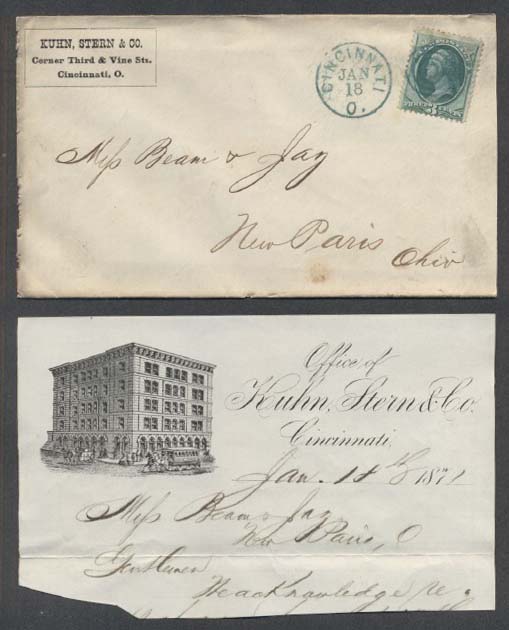 KUHN, STERN & CO.
Corner Third & Vine Sts.
Cincinnati, O.
CINCINNATI
JAN
18
O.
THREE CENTS
Mess Beam & Jay
New Paris
Ohio
Office of
Kuhn, Stern & Co.
Cincinnati,
Jan. 18th 1871
Mess Beam & Jay
New Paris, O
Gentlemen
We acknowledge re